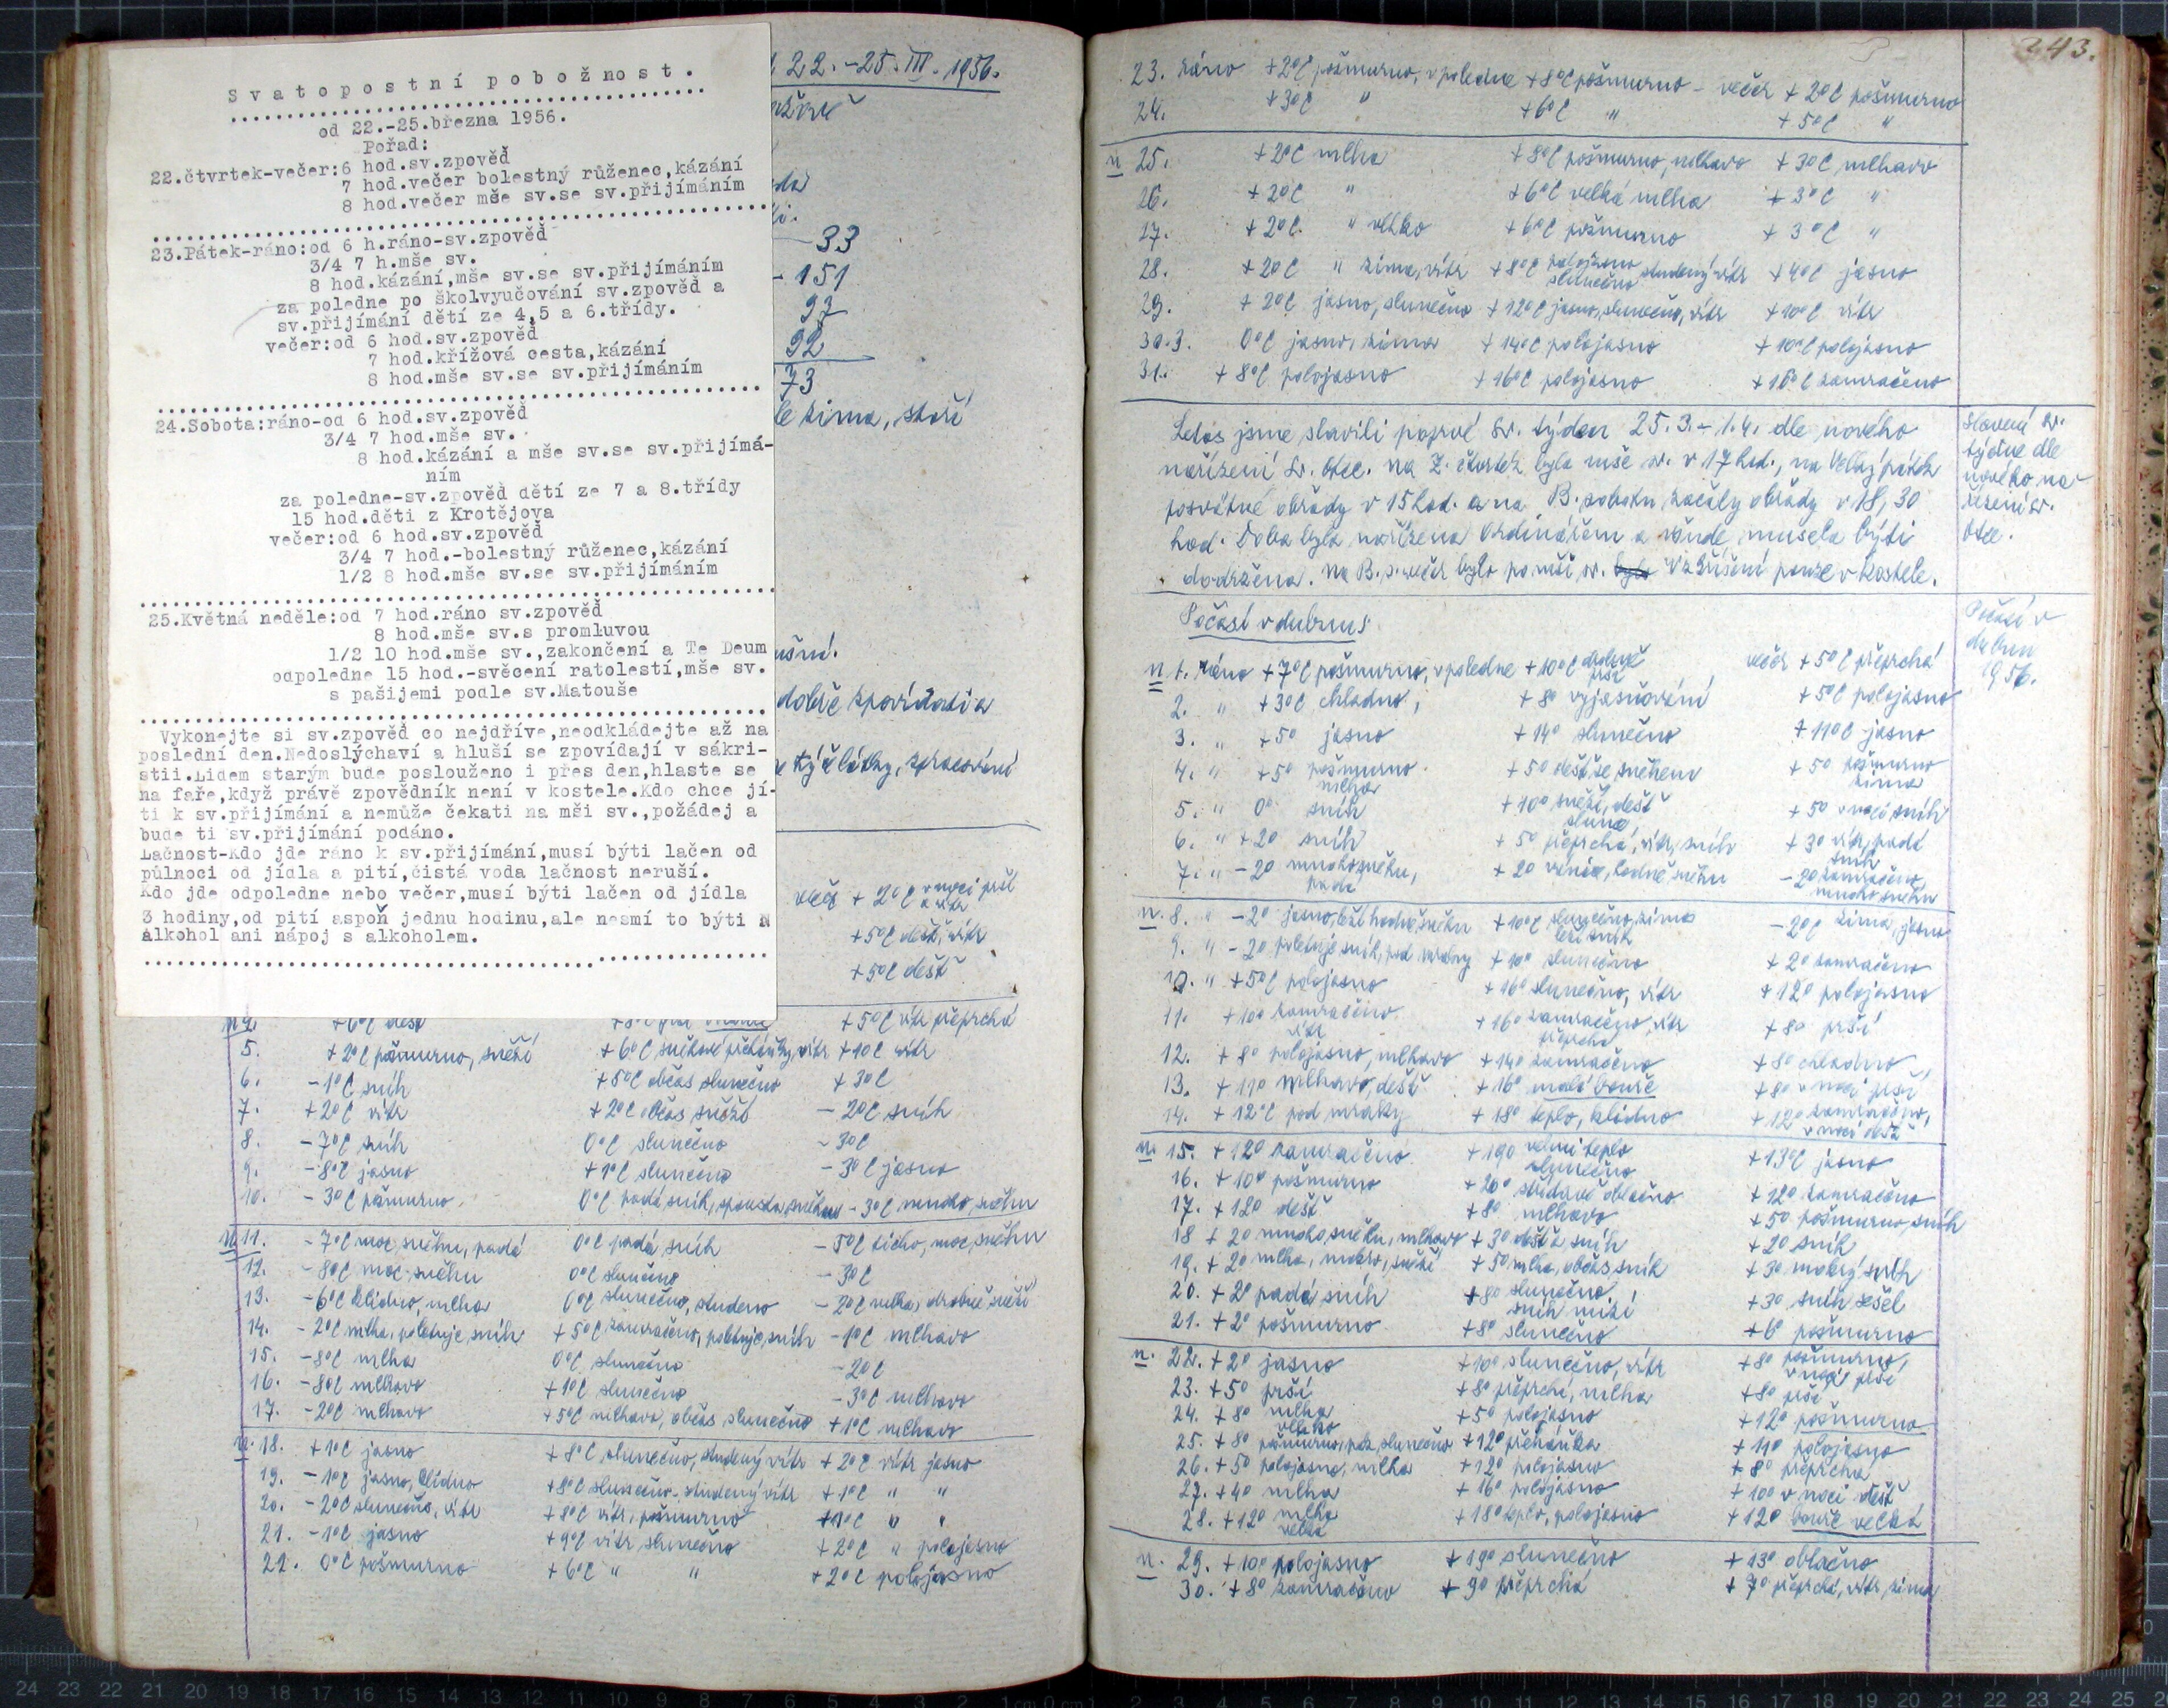 Svatopostní pobožnost.
od 22.-25.března 1956.
Pořad:
22.čtvrtek-večer:6 hod.sv.zpověď
7 hod.večer bolestný růženec,kázání
8 hod.večer mše sv.se sv.přijímáním
23.Pátek-ráno:od 6 h.ráno-sv.zpověď
3/4 7 h.mše sv.
8 hod.kázání,mše sv.se sv.přijímáním
za poledne po školvyučování sv.zpověď a
sv.přijímání dětí ze 4,5 a 6.třídy.
večer:od 6 hod.sv.zpověď
7 hod.křížová cesta,kázání
8 hod.mše sv.se sv.přijímáním
24.Sobota:ráno-od 6 hod.sv.zpověď
3/4 7 hod.mše sv.
8 hod.kázání a mše sv.se sv.přijímá-
ním
za poledne-sv.zpověď dětí ze 7 a 8.třídy
15 hod.děti z Krotějova
večer:od 6 hod.sv.zpověď
3/4 7 hod.-bolestný růženec,kázání
1/2 8 hod.mše sv.se sv.přijímáním
25.Květná neděle:od 7 hod.ráno sv.zpověď
8 hod.mše sv.s promluvou
1/2 10 hod.mše sv.,zakončení a Te Deum
odpoledne 15 hod.-svěcení ratolestí,mše sv.
s pašijemi podle sv.Matouše
Vykonejte si sv.zpověď co nejdříve,neodkládejte až na
poslední den.Nedoslýchaví a hluší se zpovídají v sákri-
stii.Lidem starým bude poslouženo i přes den,hlaste se
na faře,když právě zpovědník není v kostele.Kdo chce jí-
ti k sv.přijímání a nemůže čekati na mši sv.,požádej a
bude ti sv.přijímání podáno.
Lačnost-Kdo jde ráno k sv.přijímání,musí býti lačen od
půlnoci od jídla a pití,čistá voda lačnost neruší.
Kdo jde odpoledne nebo večer,musí býti lačen od jídla
3 hodiny,od pití aspoň jednu hodinu,ale nesmí to býti
alkohol ani nápoj s alkoholem.
22.-25.III.1956.
33
151
97
92
73
zima, staří
dobře zpovídati a
večer +2°C v noci prší
+5°C déšť, vítr
+5°C déšť
n 4. +6°C déšť +5°C vítr přeprchá
5. +2°C pošmurno, sněží +6°C sněhové přeháňky, vítr +1°C vítr
6. -1°C sníh +5°C občas slunečno +3°C
7. +2°C vítr +2°C občas sněží -2°C sníh
8. -7°C sníh 0°C slunečno -3°C
9. -8°C jasno +1°C slunečno -3°C jasno
10. -3°C pošmurno 0°C padá sníh, spousta sněhu -3°C mnoho sněhu
n 11. -7°C moc sněhu, padá 0°C padá sníh -5°C ticho, moc sněhu
12. -8°C moc sněhu 0°C slunečno -3°C
13. -6°C klidno, mlha 0°C slunečno, studeno -2°C mlha, drobně sněží
14. -2°C mlha, poletuje sníh +5°C zamračeno, poletuje sníh -1°C mlhavo
15. -8°C mlha 0°C slunečno -2°C
16. -8°C mlhavo +1°C slunečno -3°C mlhavo
17. -2°C mlhavo +5°C mlhavo, občas slunečno +1°C mlhavo
n. 18. +1°C jasno +8°C slunečno, studený vítr +2°C vítr jasno
19. -1°C jasno, klidno +8°C slunečno, studený vítr +1°C " "
20. -2°C slunečno, vítr +8°C vítr, pošmurno +1°C " "
21. -1°C jasno +9°C vítr slunečno +2°C " polojasno
22. 0°C pošmurno +6°C " " +2°C polojasno
243.
23. ráno +2°C pošmurno, v poledne +8°C pošmurno - večer +2°C pošmurno
24. +3°C " +6°C " +5°C "
n 25. +2°C mlha +8°C pošmurno, mlhavo +3°C mlhavo
26. +2°C " +6°C velká mlha +3°C "
27. +2°C " vlhko +6°C pošmurno +3°C "
28. +2°C " zima, vítr +8°C polojasno slunečno studený vítr +4°C jasno
29. +2°C jasno, slunečno +12°C jasno, slunečno, vítr +10°C vítr
30.3. 0°C jasno, zima +14°C polojasno +10°C polojasno
31. +8°C polojasno +16°C polojasno +16°C zamračeno
Letos jsme slavili poprvé sv. týden 25.3.-1.4. dle nového
nařízení sv. Otce. Na Z. čtvrtek byla mše sv. v 17 hod., na Velký pátek
posvátné obřady v 15 hod. a na B. sobotu začaly obřady v 18,30
hod. Doba byla nařízena Ordinářem a všude musela býti
dodržena. Na B.s. večer bylo po mši sv. bylo Vzkříšení pouze v kostele.
Slavení sv.
týdne dle
nového na-
řízení sv.
Otce.
Počasí v dubnu:
Počasí v
dubnu
1956.
n 1. ráno +7°C pošmurno, v poledne +10°C drobně prší večer +5°C přeprchá
2. " +3°C chladno, +8° vyjasňování +5°C polojasno
3. " +5° jasno +14° slunečno +11°C jasno
4. " +5° pošmurno mlha +5° déšť se sněhem +5° pošmurno zima
5. " 0° sníh +10° sněží, déšť slunce +5° v noci sníh
6. " +2° sníh +5° přeprchá, vítr, sníh +3° vítr, padá sníh
7. " -2° mnoho sněhu, padá +2° vánice, hodně sněhu -2° zamračeno, mnoho sněhu
n. 8. " -2° jasno, leží hodně sněhu +10°C slunečno, zima leží sníh -2°C zima, jasno
9. " -2° poletuje sníh, pod mraky +10° slunečno +2° zamračeno
10. " +5°C polojasno +16° slunečno, vítr +12° polojasno
11. +10° zamračeno vítr +16° zamračeno, vítr přeprchá +8° prší
12. +8° polojasno, mlhavo +14° zamračeno +8° chladno
13. +11° mlhavo, déšť +16° malá bouře +8° v noci prší
14. +12°C pod mraky +18° teplo, klidno +12° zamračeno, v noci déšť
n. 15. +12° zamračeno +19° velmi teplo slunečno +13°C jasno
16. +10° pošmurno +20° střídavě oblačno +12° zamračeno
17. +12° déšť +8° mlhavo +5° pošmurno, sníh
18 +2° mnoho sněhu, mlhavo +3° déšť a sníh +2° sníh
19. +2° mlha, mokro, sněží +5° mlha, občas sníh +3° mokrý sníh
20. +2° padá sníh +8° slunečno sníh mizí +3° sníh sešel
21. +2° pošmurno +8° slunečno +6° pošmurno
n. 22. +2° jasno +10° slunečno, vítr +8° pošmurno, v noci prší
23. +5° prší +8° přeprchá, mlha +8° prší
24. +8° mlha vlhko +5° polojasno +12° pošmurno
25. +8° pošmurno, pak slunečno +12° přeháňka +11° polojasno
26. +5° polojasno, mlha +12° polojasno +8° přeprchá
27. +4° mlha +16° polojasno +10° v noci déšť
28. +12° mlha velká +18° teplo, polojasno +12° bouře velká
n. 29. +10° polojasno +19° slunečno +13° oblačno
30. +8° zamračeno +9° přeprchá +7° přeprchá, vítr, zima